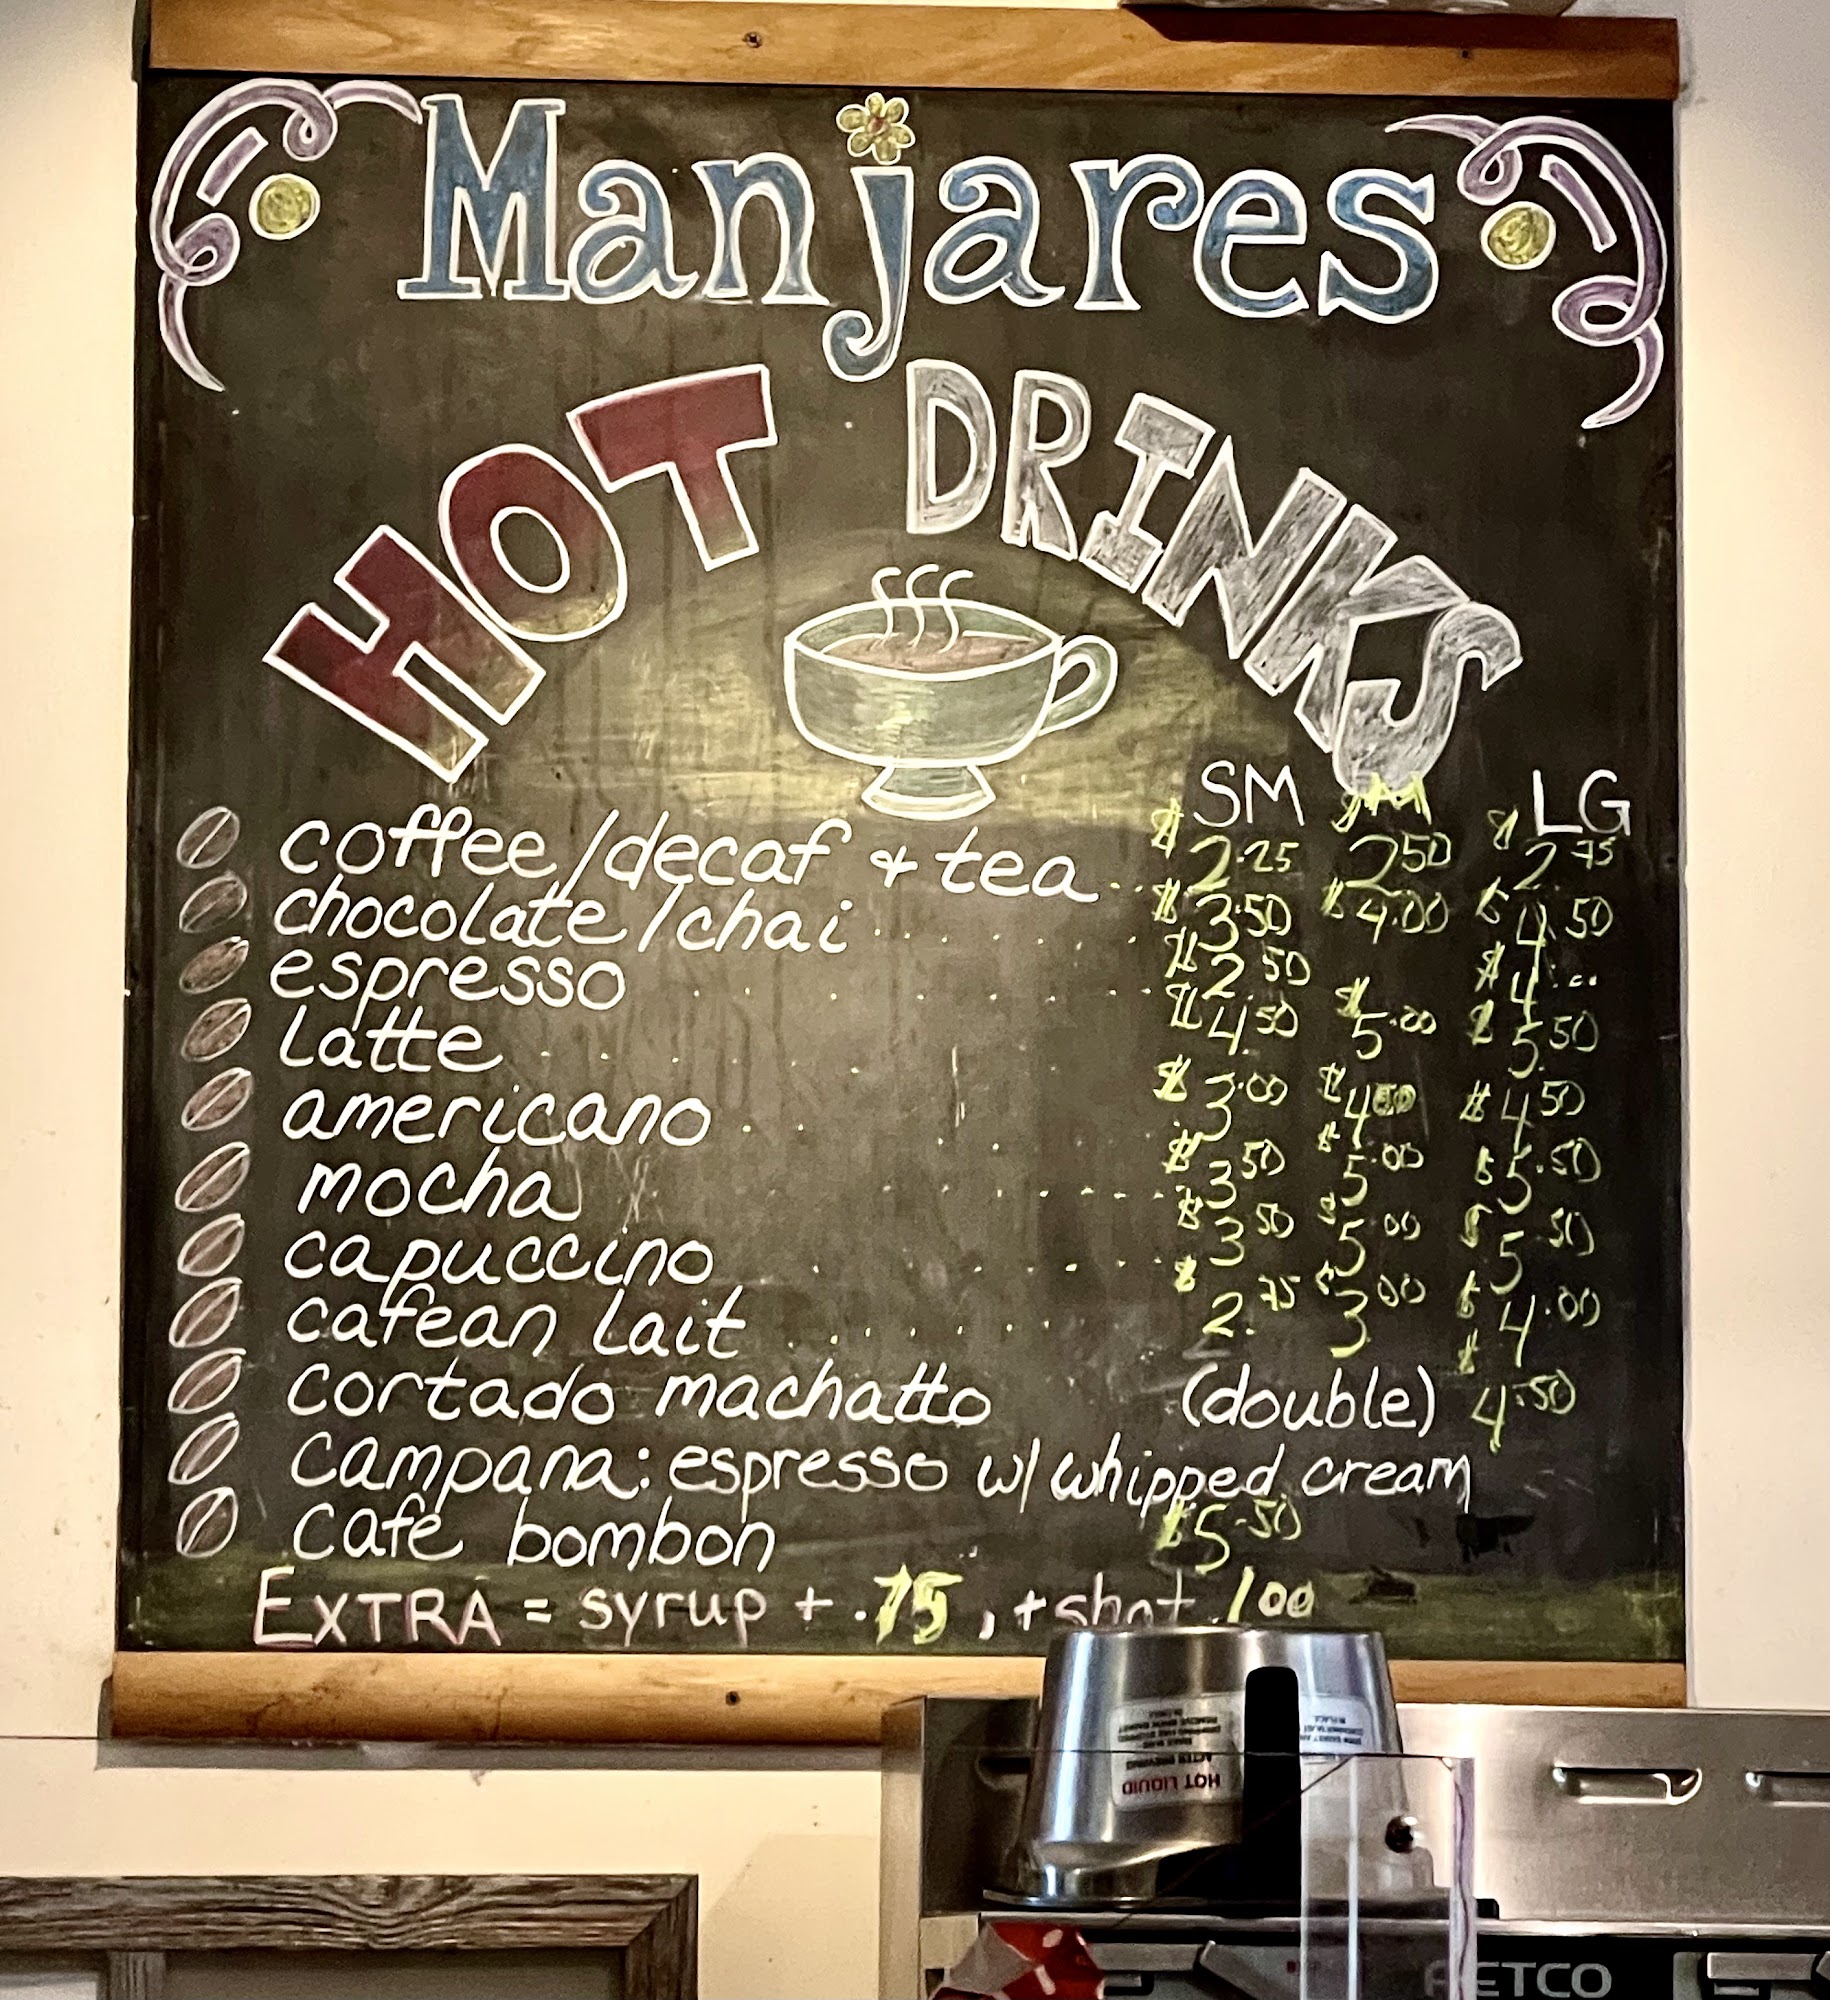 Manjares
HOT DRINKS
SM M LG
coffee/decaf + tea.. $2.25 250 $2.75
chocolate/chai $3.50 $4.00 $4.50
espresso $2.50 $4.00
Latte $4.50 $5.00 $5.50
americano $3.00 $4 $4.50
mocha $3.50 $5.00 $5.50
capuccino $3.50 $5.00 $5.50
cafean Lait $2.75 $3.00 $4.00
cortado machatto (double) $4.50
campana: espresso w/ whipped cream
café bombon $5.50
EXTRA = syrup + .75, + shot 1.00
HOT LIQUID
AFTER BREWING
FETCO